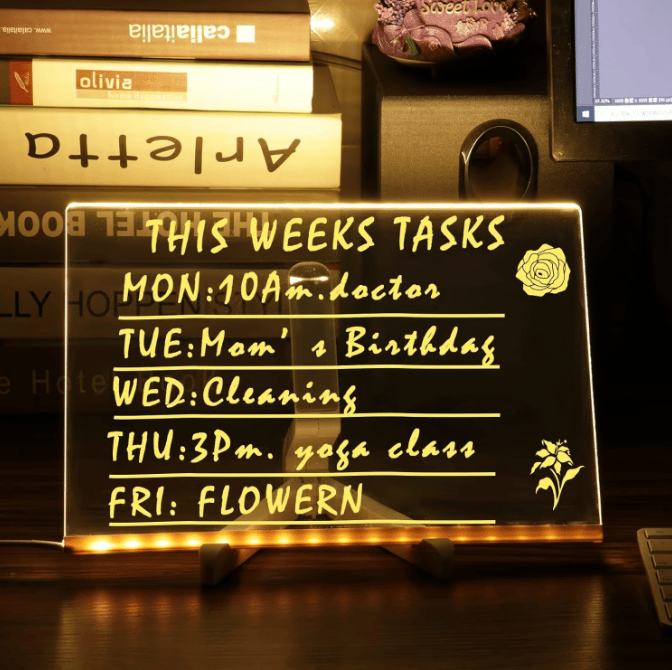 www.caliaitalia.
caliaitalia
olivia
Arletta
THE HOTEL BOOK
LLY HOPPEN STYLE
e Hotel
Sweet Love
THIS WEEKS TASKS
MON:10Am.doctor
TUE:Mom's Birthdag
WED:Cleaning
THU:3Pm. yoga class
FRI: FLOWERN